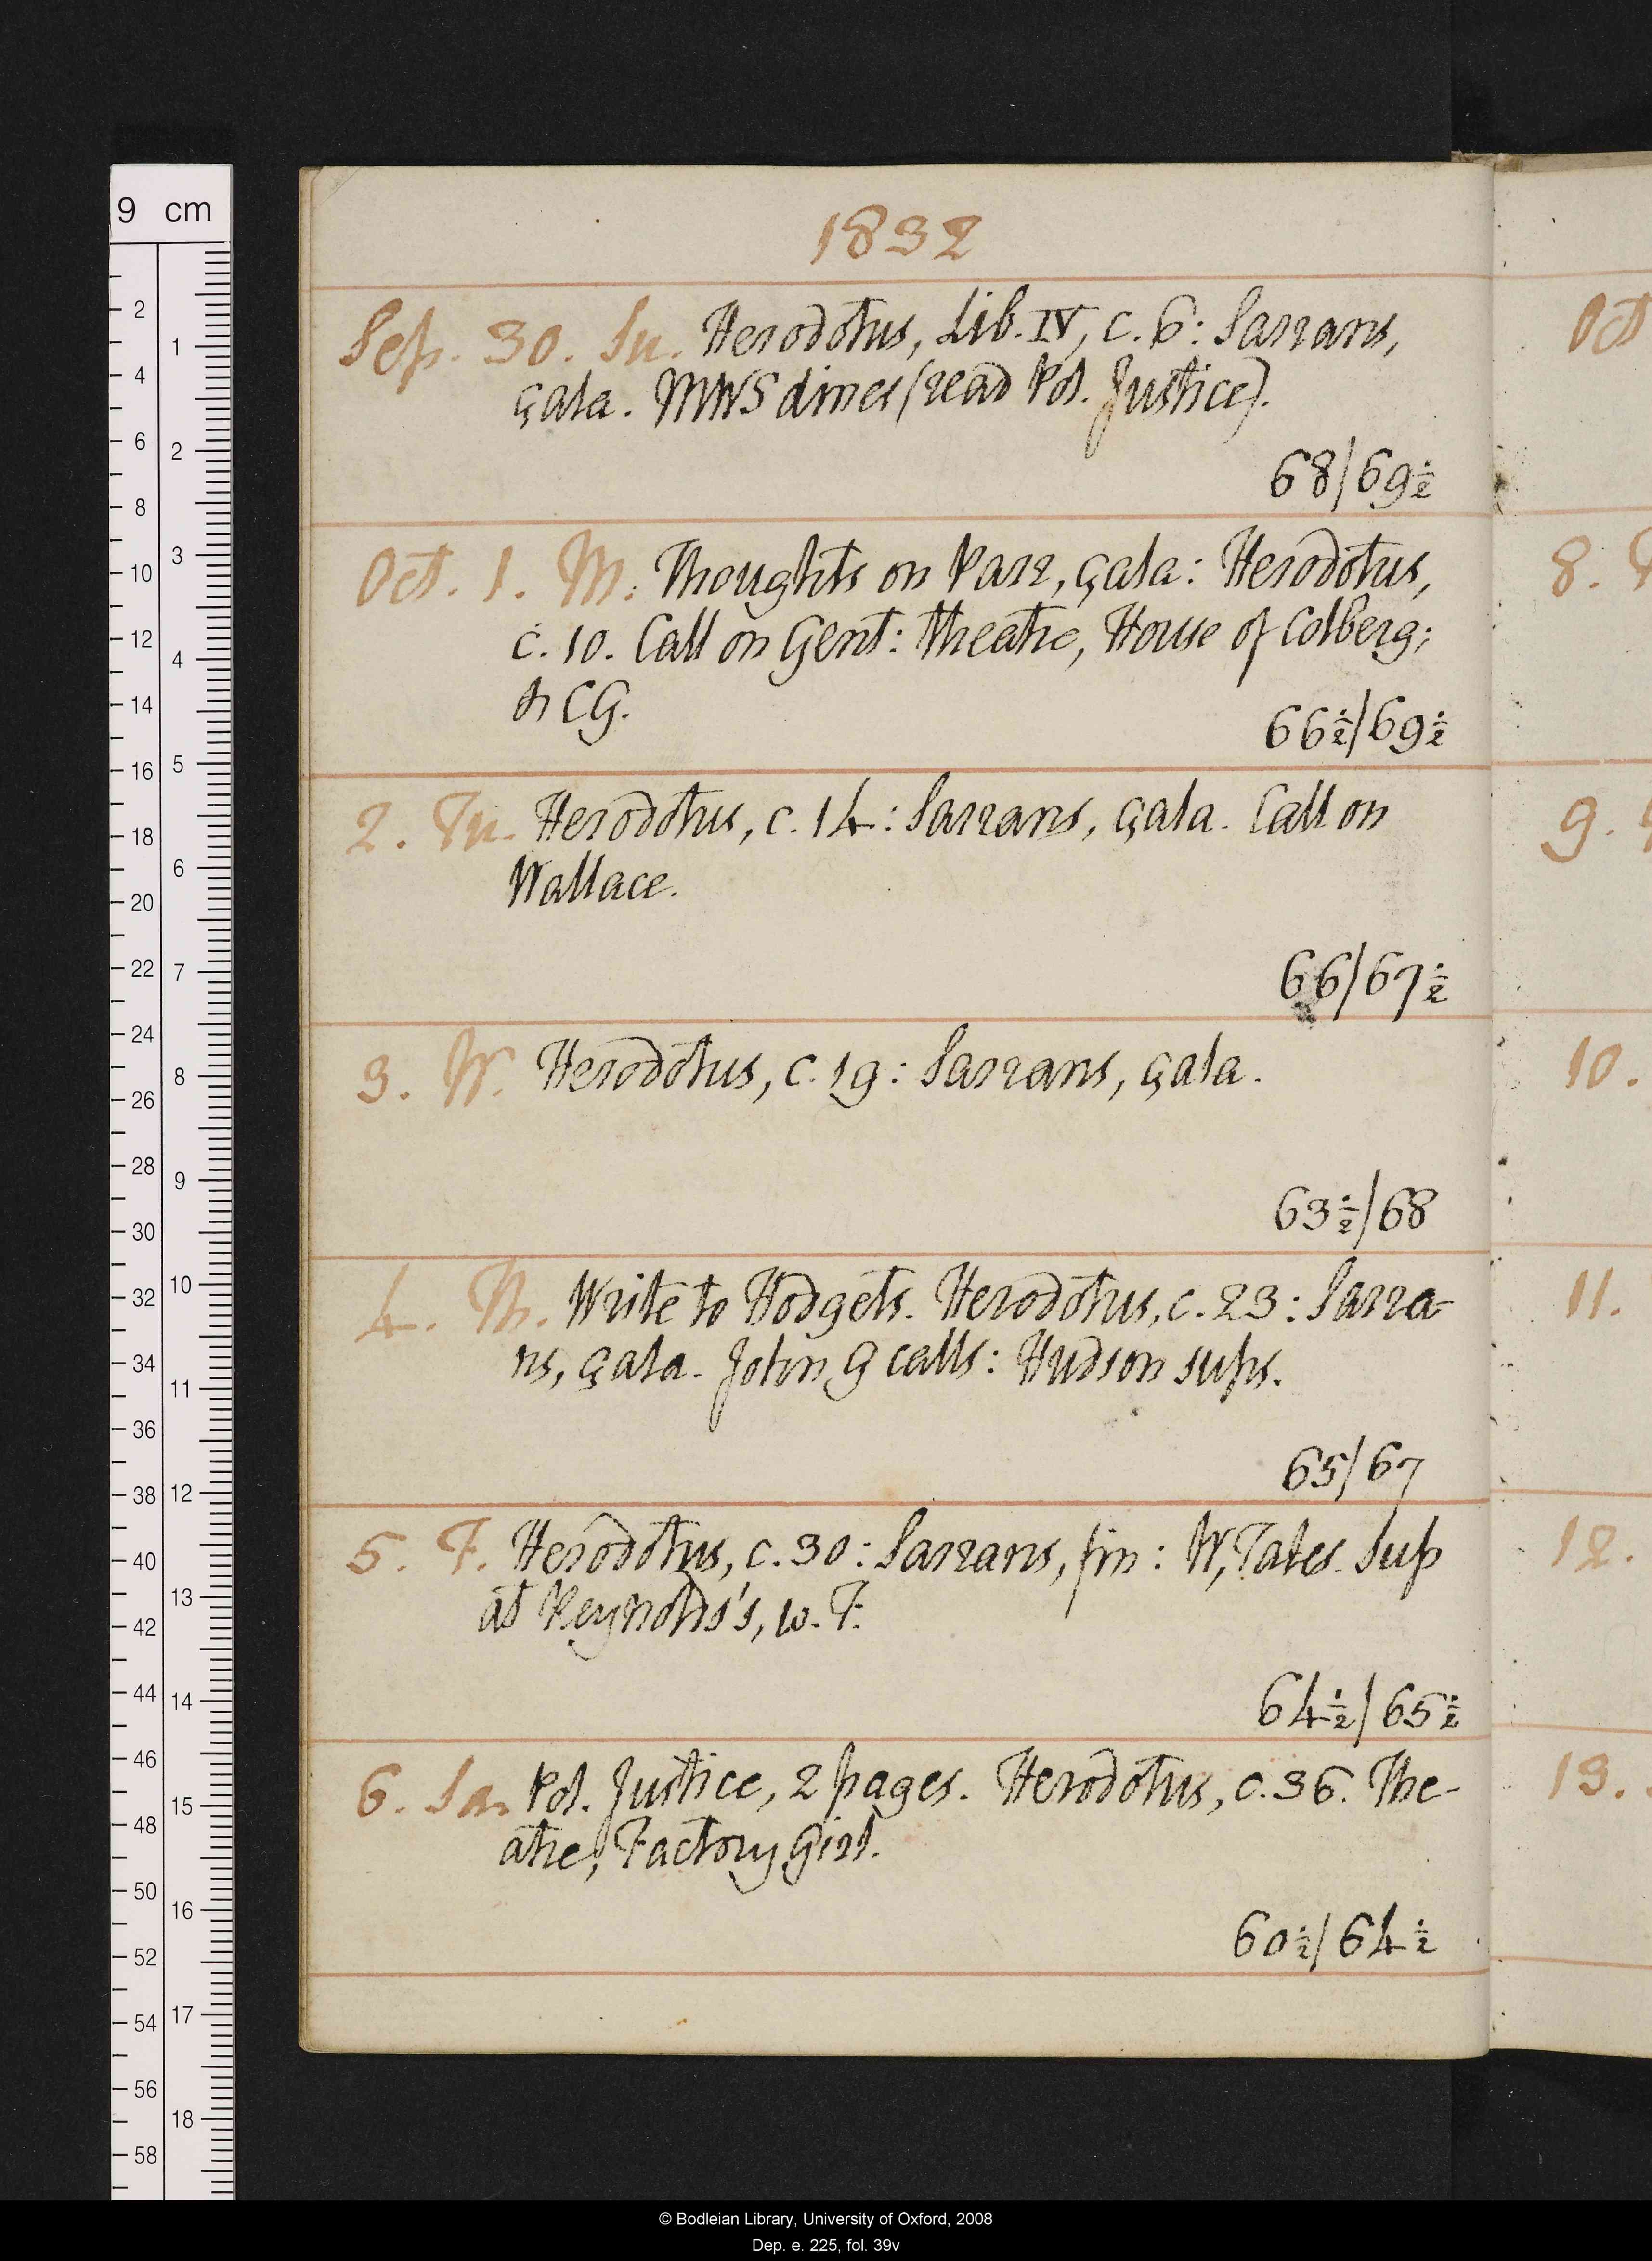 1832
Sep. 30. Su. Herodotus, Lib. IV, c. 6: Sarrans,
çala. MWS dines (read Pol. Justice).
68/69½
Oct. 1. M. Thoughts on Parr, çala: Herodotus,
c. 10. Call on Gent: theatre, House of Colberg;
n CG.
66½/69½
2. Tu. Herodotus, c. 14: Sarrans, çala. Call on
Wallace.
66/67½
3. W. Herodotus, c. 19: Sarrans, çala.
63½/68
4. Th. Write to Hodgets. Herodotus, c. 23: Sarra-
ns, çala. John G calls: Hudson sups.
65/67
5. F. Herodotus, c. 30: Sarrans, fin: W, Tales. Sup
at Reynolds's, w. F.
64½/65½
6. Sa. Pol. Justice, 2 pages. Herodotus, c. 36. The-
atre, Factory Girl.
60½/64½
Oct
8.
9.
10.
11.
12.
13.
9 cm
2
4
6
8
10
12
14
16
18
20
22
24
26
28
30
32
34
36
38
40
42
44
46
48
50
52
54
56
58
1
2
3
4
5
6
7
8
9
10
11
12
13
14
15
16
17
18
© Bodleian Library, University of Oxford, 2008
Dep. e. 225, fol. 39v